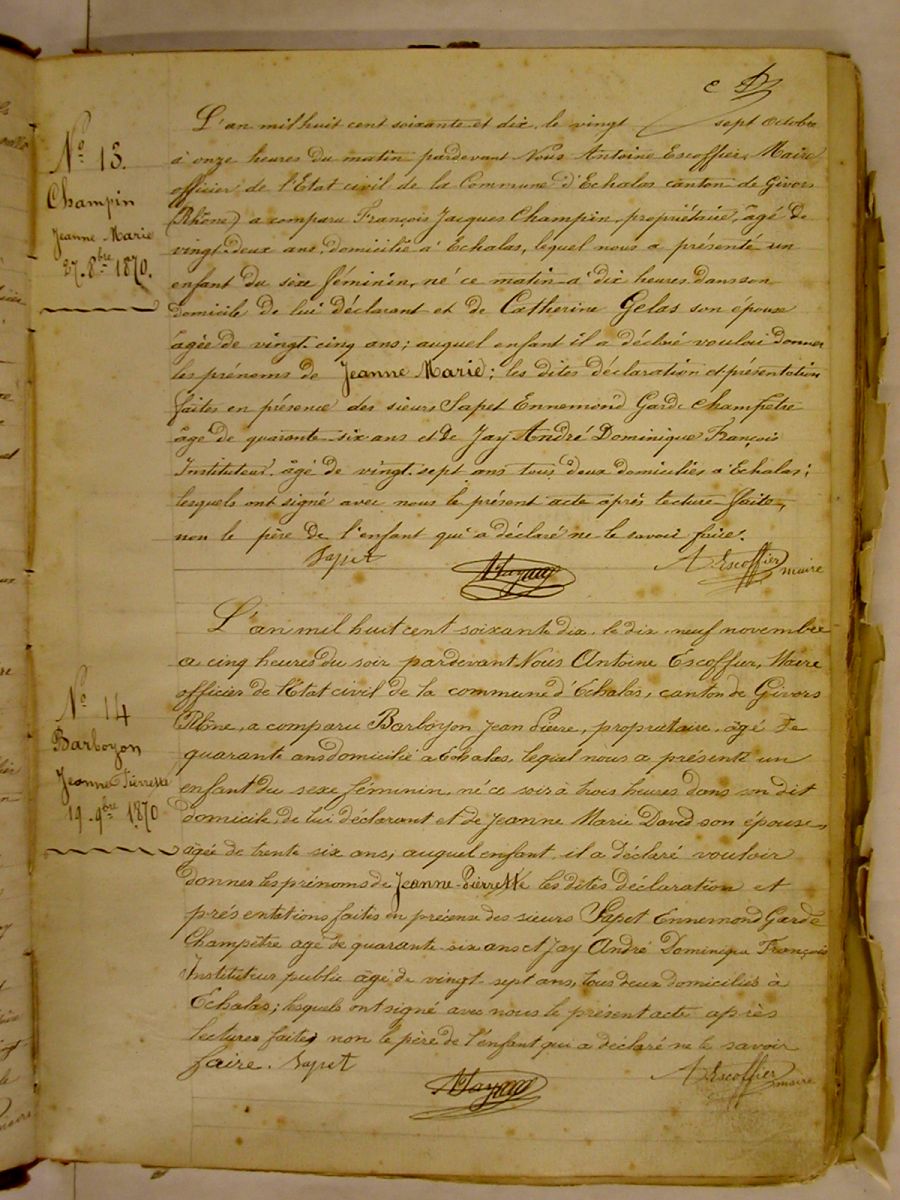 N° 13.
Champin
Jeanne Marie
27. 8bre 1870.
L'an mil huit cent soixante et dix, le vingt sept Octobre
à onze heures du matin pardevant Nous Antoine Escoffier, Maire
officier de l'Etat civil de la Commune d'Echalas canton de Givors
(Rhône) a comparu François Jacques Champin, propriétaire, âgé de
vingt-deux ans, domicilié à Echalas, lequel nous a présenté un
enfant du sexe féminin, né ce matin à dix heures dans son
domicile de lui déclarant et de Catherine Gelas son épouse
âgée de vingt cinq ans; auquel enfant il a déclaré vouloir donner
les prénoms de Jeanne Marie; les dites déclaration et présentation
faites en présence des sieurs Sapet Ennemond Garde Champêtre
âgé de quarante-six ans et de Jay André Dominique François
Instituteur âgé de vingt-sept ans tous deux domiciliés à Echalas;
lesquels ont signé avec nous le présent acte après lecture faite,
non le père de l'enfant qui a déclaré ne le savoir faire.
Sapet A Escoffier maire
N° 14
Barboyon
Jeanne Pierrette
19. 9bre 1870
L'an mil huit cent soixante dix, le dix-neuf novembre
a cinq heures du soir pardevant Nous Antoine Escoffier, Maire
officier de l'Etat civil de la commune d'Echalas, canton de Givors
Rhône, a comparu Barboyon Jean Pierre, propriétaire, âgé de
quarante ans domicilié à Echalas, lequel nous a présenté un
enfant du sexe féminin, né ce soir à trois heures dans son dit
domicile, de lui déclarant et de Jeanne Marie David son épouse,
âgée de trente six ans; auquel enfant il a déclaré vouloir
donner les prénoms de Jeanne-Pierrette les dites déclaration et
présentations faites en présense des sieurs Sapet Ennemond Garde
Champêtre âgé de quarante-six ans et Jay André Dominique François
Instituteur public âgé de vingt-sept ans, tous deux domiciliés à
Echalas; lesquels ont signé avec nous le présent acte après
lecture faite, non le père de l'enfant qui a déclaré ne le savoir
faire. Sapet A Escoffier maire